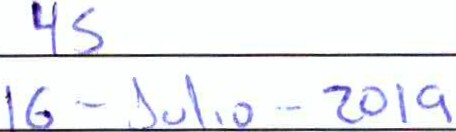 45
16 - Julio - 2019